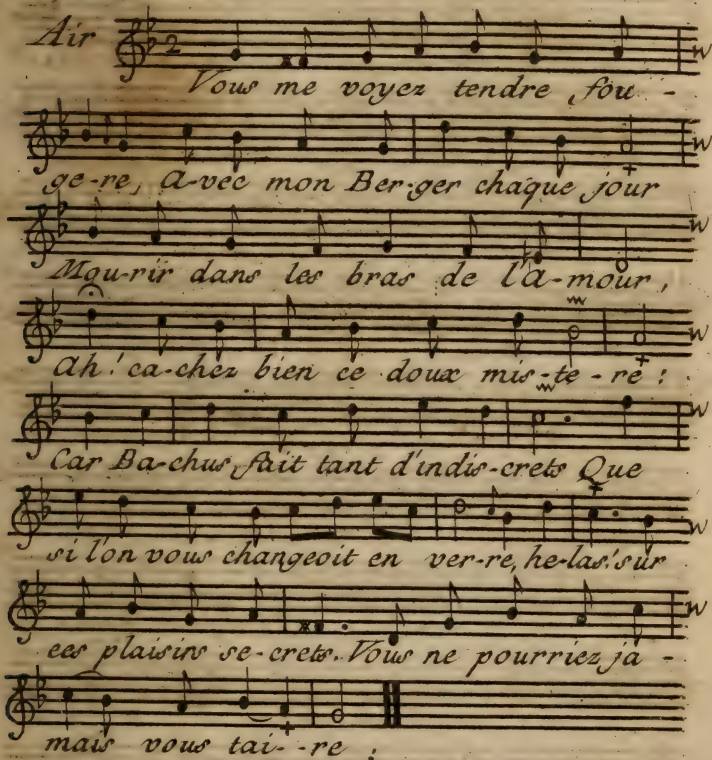 Air 2
Vous me voyez tendre fou -
ge-re, A-vec mon Ber-ger chaque jour
Mou-rir dans les bras de l'A-mour,
Ah! ca-chez bien ce doux mis-te-re:
Car Ba-chus fait tant d'indis-crets Que
si l'on vous changeoit en ver-re, he-las! sur
ces plaisirs se-crets. Vous ne pourriez ja -
mais vous tai--re;